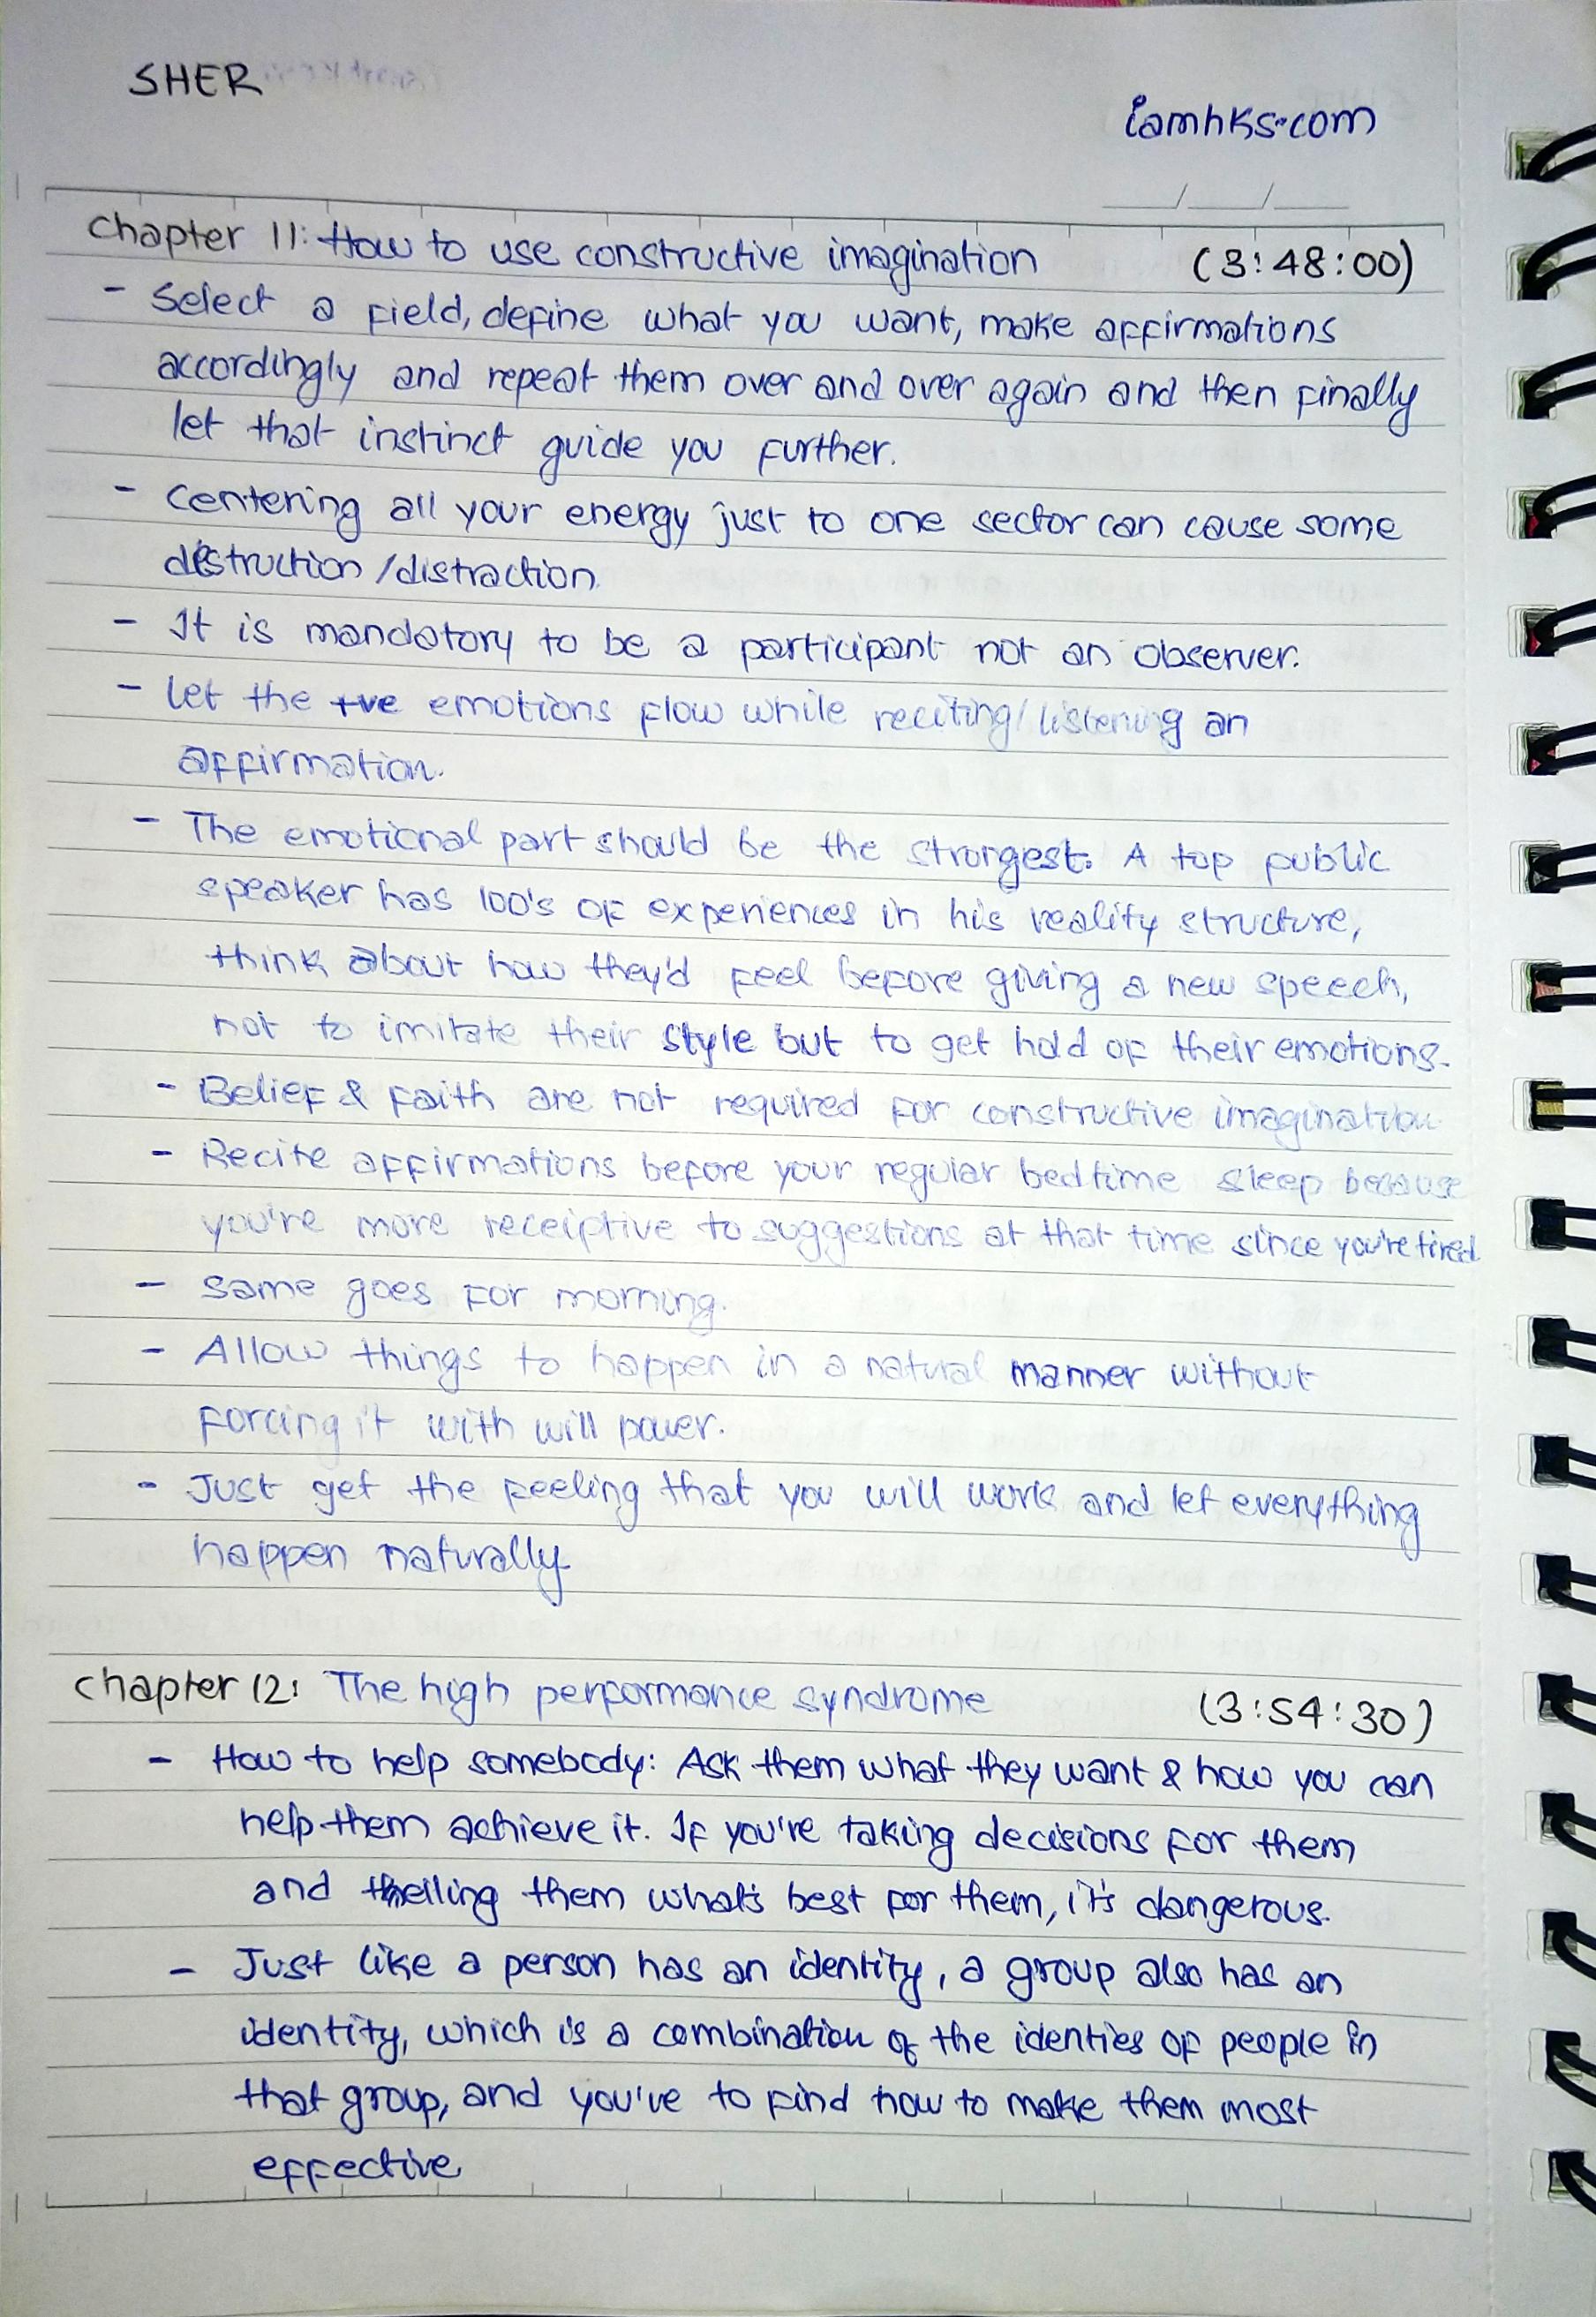 SHER
iamhks.com
Chapter 11: How to use constructive imagination (3:48:00)
- Select a field, define what you want, make affirmations
accordingly and repeat them over and over again and then finally
let that instinct guide you further.
- Centering all your energy just to one sector can cause some
destruction/distraction.
- It is mandatory to be a participant not an observer.
- Let the +ve emotions flow while reciting/listening an
affirmation.
- The emotional part should be the strongest. A top public
speaker has 100's of experiences in his reality structure,
think about how they'd feel before giving a new speech,
not to imitate their style but to get hold of their emotions.
- Belief & faith are not required for constructive imagination
- Recite affirmations before your regular bedtime sleep because
you're more receiptive to suggestions at that time since you're tired.
- Same goes for morning.
- Allow things to happen in a natural manner without
forcing it with will power.
- Just get the feeling that you will work and let everything
happen naturally
Chapter 12: The high performance syndrome (3:54:30)
- How to help somebody: Ask them what they want & how you can
help them achieve it. If you're taking decisions for them
and telling them what's best for them, it's dangerous.
- Just like a person has an identity, a group also has an
identity, which is a combination of the identies of people in
that group, and you've to find how to make them most
effective